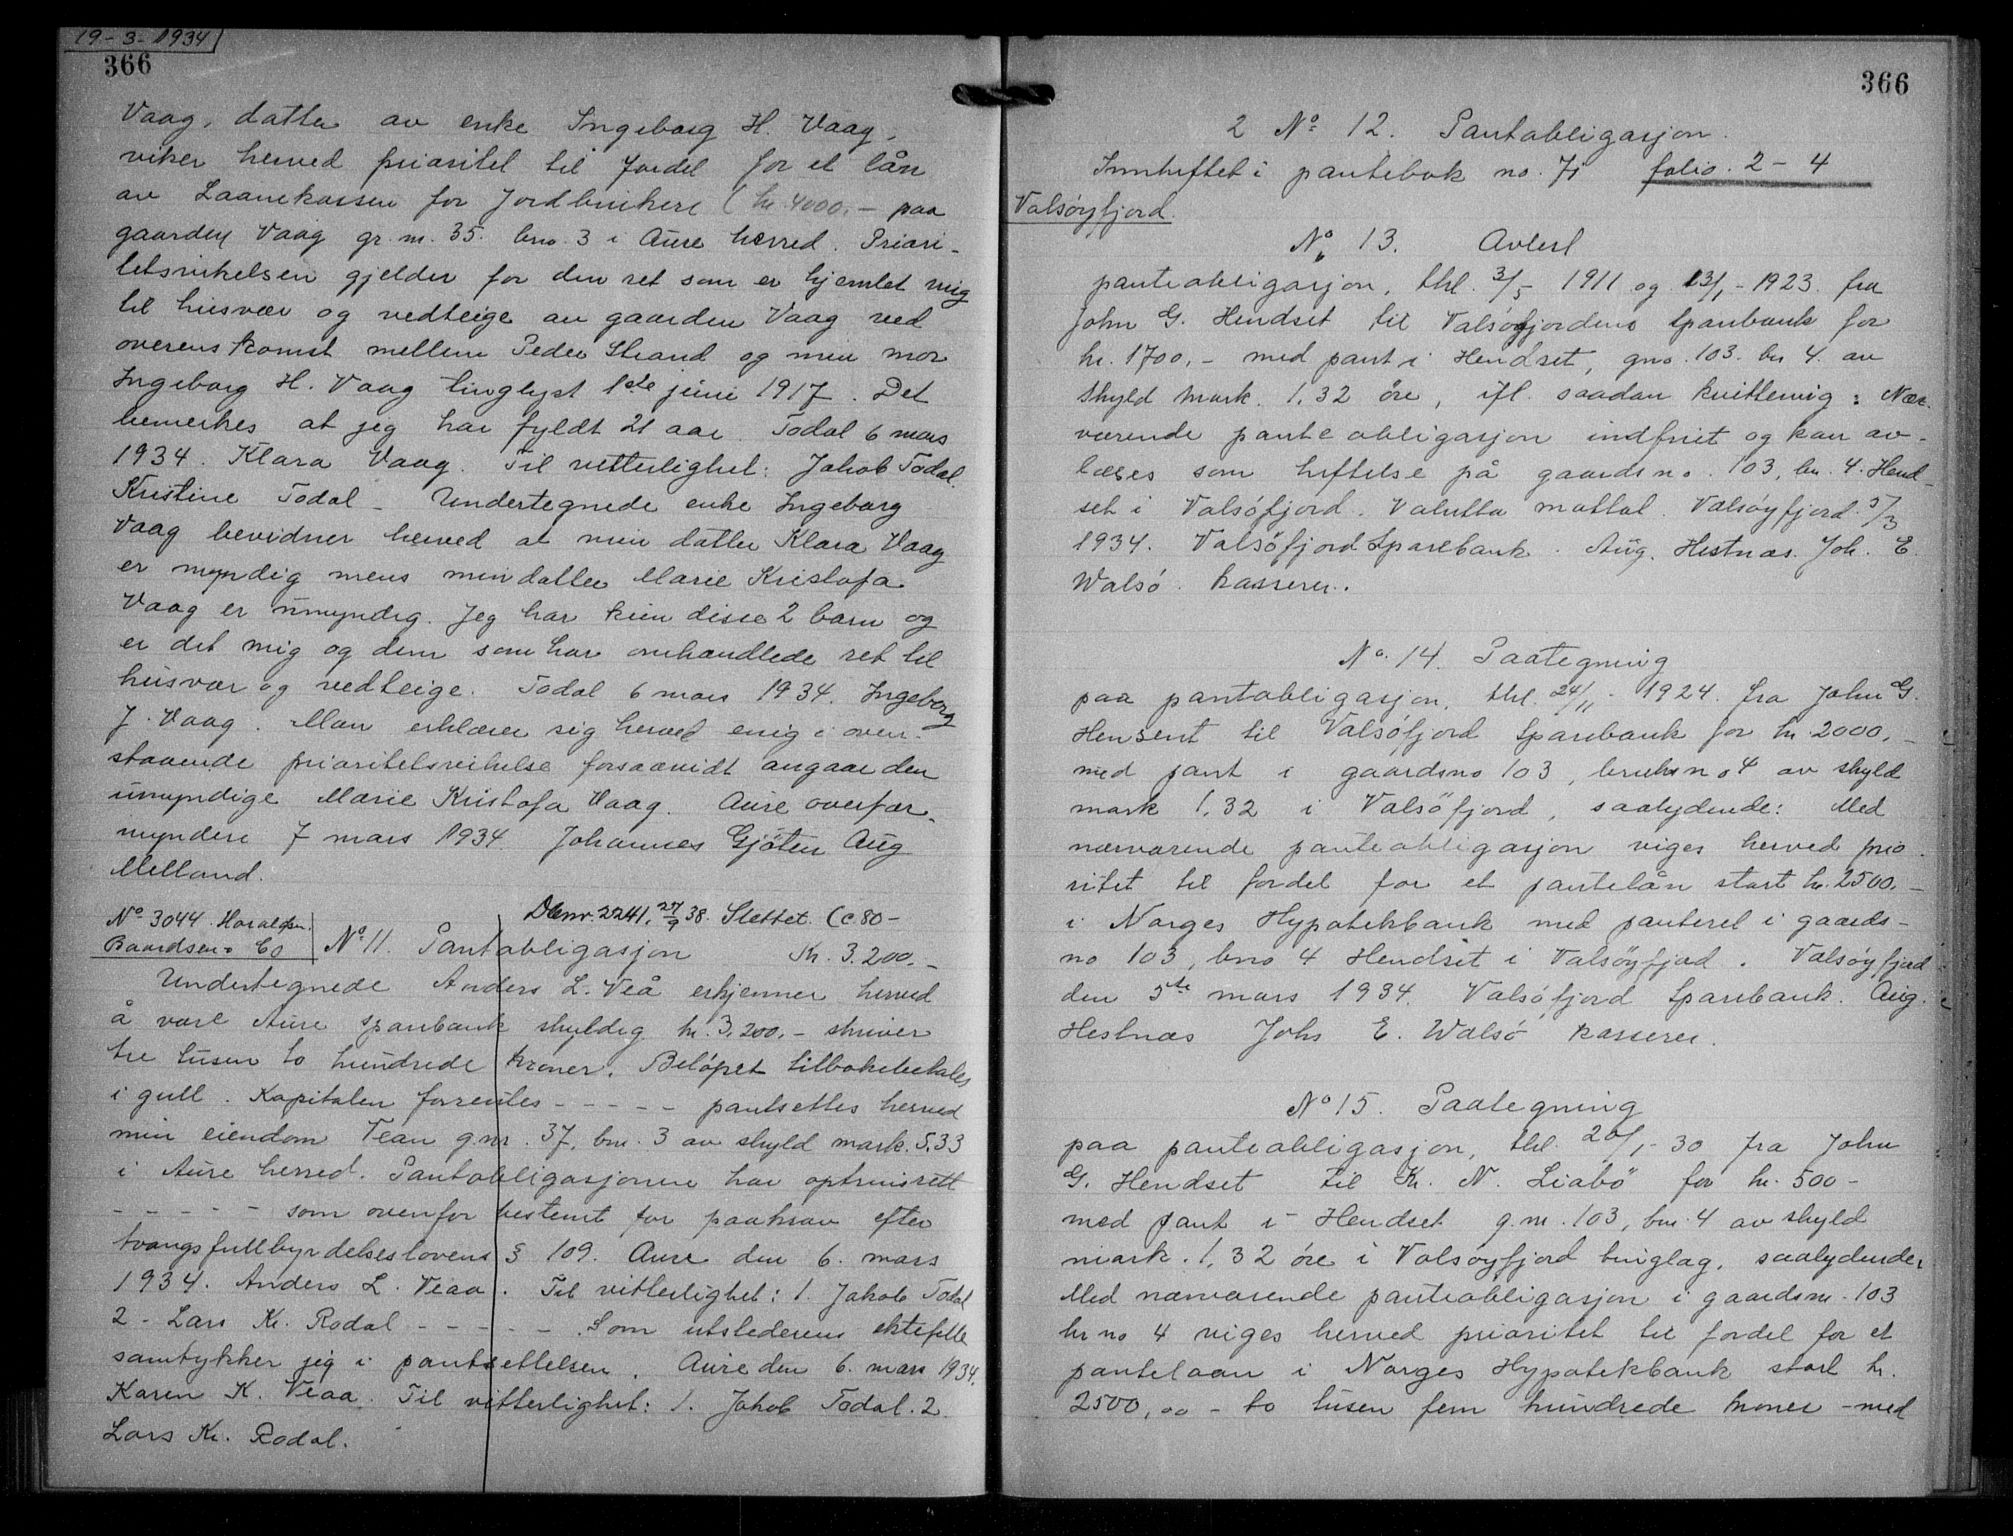 19-3-1934
366
Vaag, datter av enke Ingeborg H. Vaag,
viker herved prioritet til fordel for et lån
av Laanekassen for Jordbrukere (kr. 4000.- paa
gaarden Vaag gr. nr. 35. bno. 3 i Aure herred. Priori-
tetsvikelsen gjelder for den ret som er hjemlet mig
til husvær og vedteige av gaarden Vaag ved
overenskomst mellem Peder Strand og min mor
Ingeborg H. Vaag tinglyst 1ste juni 1917. Det
bemerkes at jeg har fyldt 21 aar. Todal 6 mars
1934. Klara Vaag. Til vitterlighet: Jakob Todal.
Kristine Todal - Undertegnede enke Ingeborg
Vaag bevidner herved at min datter Klara Vaag
er myndig mens min datter Marie Kristofa
Vaag er umyndig. Jeg har kun disse 2 barn og
er det mig og dem som har omhandlede ret til
husvær og vedteige. Todal 6 mars 1934. Ingeborg
J. Vaag. Man erklærer sig herved enig i oven-
staaende prioritetsvikelse forsaavidt angaar den
umyndige Marie Kristofa Vaag. Aure overfor-
myndere 7 mars 1934. Johannes Gjöten Aug
Melland.
Dbnr. 2241. 27/9 38. Slettet. (c 80-
No 3044. Haraldsen.
Baardsen & Co
No 11. Pantobligasjon Kr. 3.200.-
Undertegnede Anders L. Veå erkjenner herved
å være Aure sparebank skyldig kr. 3.200.- skriver
tre tusen to hundrede kroner. Beløpet tilbakebetales
i gull. Kapitalen forrentes - - - - - pantsettes herved
min eiendom Vean g.nr. 37, bnr. 3 av skyld mark. 5,33
i Aure herred. Pantobligasjonen har optrinsrett
- - - - - som ovenfor bestemt for paakrav efter
tvangsfullbyrdelseslovens § 109. Aure den 6. mars
1934. Anders L. Veaa. Til vitterlighet: 1. Jakob Todal
2 - Lars Kr. Rodal - - - - - Som utstederens ektefelle
samtykker jeg i pantsettelsen. Aure den 6. mars 1934.
Karen K. Veaa. Til vitterlighet: 1. Jakob Todal. 2.
Lars Kr. Rodal.
366
2 No 12. Pantobligasjon.
Innheftet i pantebok no. 71 folio. 2 - 4
Valsøyfjord.
No 13. Avlest
panteobligasjon, thl. 3/5 - 1911 og 13/1 - 1923 fra
John G. Hendset til Valsøyfjordens sparebank for
kr. 1700.- med pant i Hendset, gno. 103. bn 4. av
skyld mark. 1,32 öre, ifl. saadan kvittering: Nær-
værende panteobligasjon indfriet og kan av-
læses som heftelse på gaardsno. 103, bn. 4. Hend-
set i Valsöfjord. Valutta mottat. Valsøyfjord 5/3
1934. Valsöfjord Sparebank. Aug. Hestnæs. Joh. E.
Walsö. kasserer.
No. 14. Paategning
paa pantobligasjon, thl. 24/11 - 1924. fra John G.
Hensent til Valsöfjord Sparebank for kr. 2000.-
med pant i gaardsno 103, bruksno 4 av skyld
mark 1,32 i Valsöfjord, saalydende: Med
nærværende panteobligasjon viges herved prio
ritet til fordel for et pantelån stort kr. 2500.-
i Norges Hypotekbank med panteret i gaards-
no 103, bno 4 Hendset i Valsøyfjord. Valsøyfjord
den 5te mars 1934. Valsöfjord Sparebank. Aug.
Hestnæs Johs E. Walsö kasserer.
No 15. Paategning
paa panteobligasjon, thl. 20/1 - 30 fra John
G. Hendset til Kr. N. Liabö for kr. 500-
med pant i Hendset g.nr. 103, bnr. 4 av skyld
mark. 1,32 öre i Valsøyfjord tinglag, saalydende:
Med nærværende panteobligasjon i gaardsnr. 103
br no 4 viges herved prioritet til fordel for et
pantelaan i Norges Hypotekbank stort kr.
2500,00 - to tusen fem hundrede kroner - med